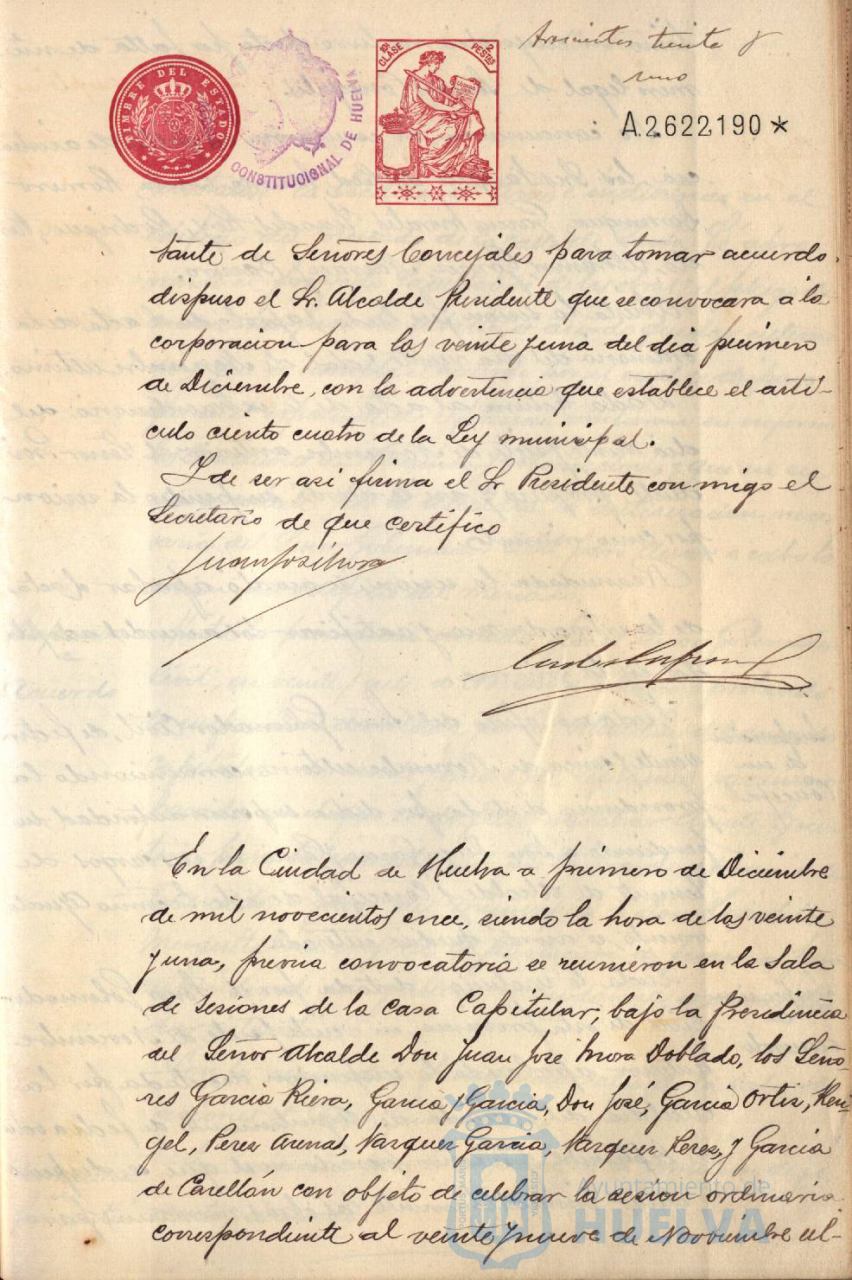 Trescientos treinta y
uno
TIMBRE DEL ESTADO
CONSTITUCIONAL DE HUELVA
10ª CLASE
2 PESTAS
A.2.622.190 *
tante de Señores Concejales para tomar acuerdo,
dispuso el Sr. Alcalde Presidente que se convocara á la
corporacion para las veinte y una del dia primero
de Diciembre, con la advertencia que establece el arti-
culo ciento cuatro de la Ley municipal.
Y de ser asi firma el Sr Presidente con migo el
Secretario de que certifico
Juan José Mora
En la Ciudad de Huelva a primero de Diciembre
de mil novecientos once, siendo la hora de las veinte
y una, previa convocatoria se reunieron en la Sala
de Sesiones de la casa Capitular, bajo la Presidencia
del Señor Alcalde Don Juan José Mora Doblado, los Seño-
res Garcia Riera, Garcia y Garcia, Don José, Garcia Ortiz, Ren-
gel, Perez Arenas, Vazquez Garcia, Vazquez Perez, y Garcia
de Carellán con objeto de celebrar la sesion ordinaria
correspondiente al veinte y nueve de Noviembre úl-
Ayuntamiento de
HUELVA